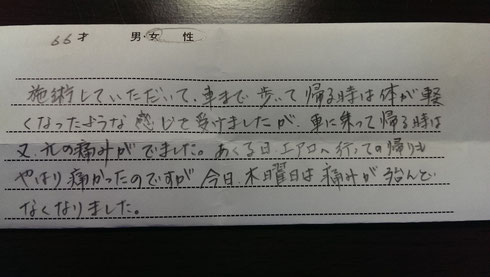 66才 男・女 性
施術していただいて、車まで歩いて帰る時は体が軽
くなったような感じを受けましたが、車に乗って帰る時は
又、元の痛みがでました。あくる日、エアロへ行っての帰りも
やはり痛かったのですが今日、木曜日は痛みが殆んど
なくなりました。